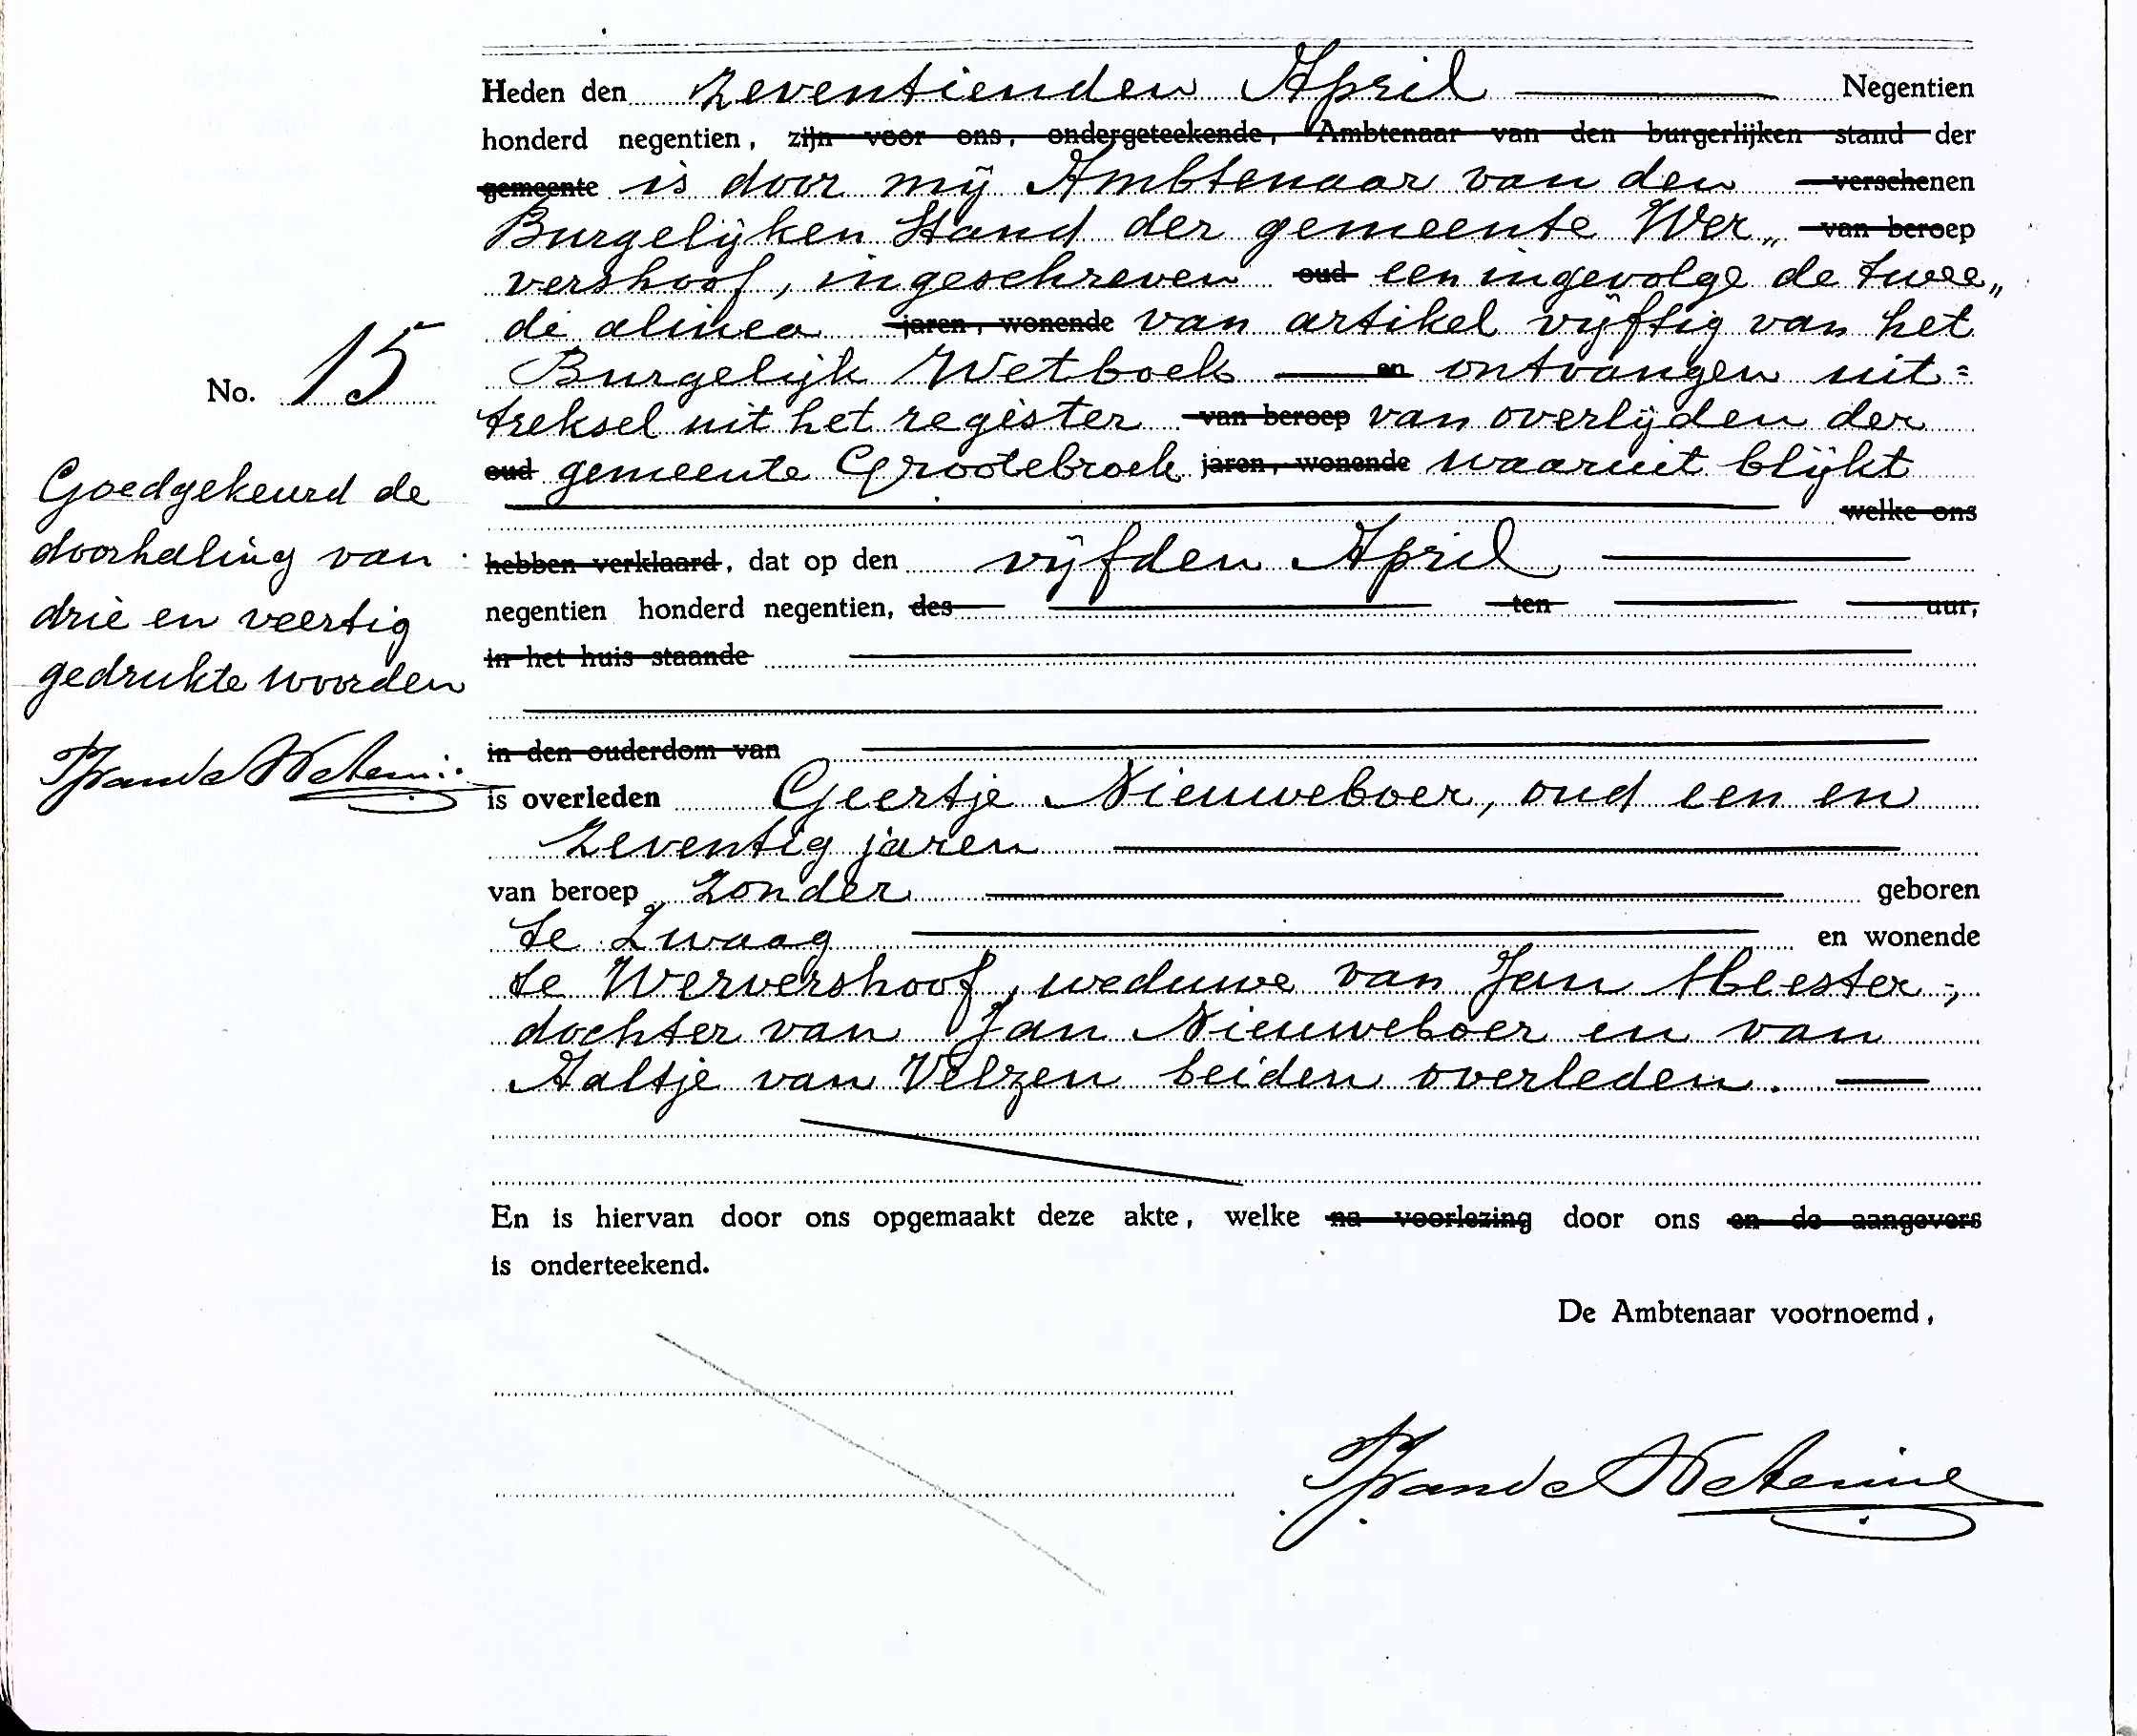 Heden den zeventienden April Negentien
honderd negentien, zijn voor ons, ondergeteekende, Ambtenaar van den burgerlijken stand der
gemeente is door mij Ambtenaar van den verschenen
Burgelijken Stand der gemeente Wer„ van beroep
vershoof, ingeschreven oud een ingevolge de twee„
de alinea jaren, wonende van artikel vijftig van het
No. 15 Burgelijk Wetboek en ontvangen uit=
treksel uit het register van beroep van overlijden der
oud gemeente Grootebroek jaren, wonende waaruit blijkt
welke ons
hebben verklaard, dat op den vijfden April
negentien honderd negentien, des ten uur,
in het huis staande
in den ouderdom van
is overleden Geertje Nieuweboer, oud een en
zeventig jaren
van beroep zonder geboren
te Zwaag en wonende
te Wervershoof, weduwe van Jan Meester,
dochter van Jan Nieuweboer en van
Aaltje van Velzen beiden overleden.
En is hiervan door ons opgemaakt deze akte, welke na voorlezing door ons en de aangevers
is onderteekend.
De Ambtenaar voornoemd,
Goedgekeurd de
doorhaling van
drie en veertig
gedrukte woorden